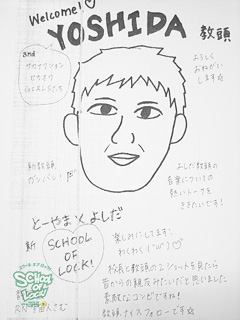 Welcome!♡
YOSHIDA 教頭
and
サカナクション
よろしく
おねがい
します☆
新教頭
ガンバレ!
よしだ教頭の
音楽についての
熱いトークを
ききたいです!
とーやま×よしだ
新
SCHOOL
OF
LOCK!
楽しみにしてます!
わくわく(^o^)♡
校長と教頭の2ショットを見たら
昔からの親友みたいだと思いました
素敵なコンビですね!
教頭ナイスフォローです☆
SCHOOL
OF LOCK!